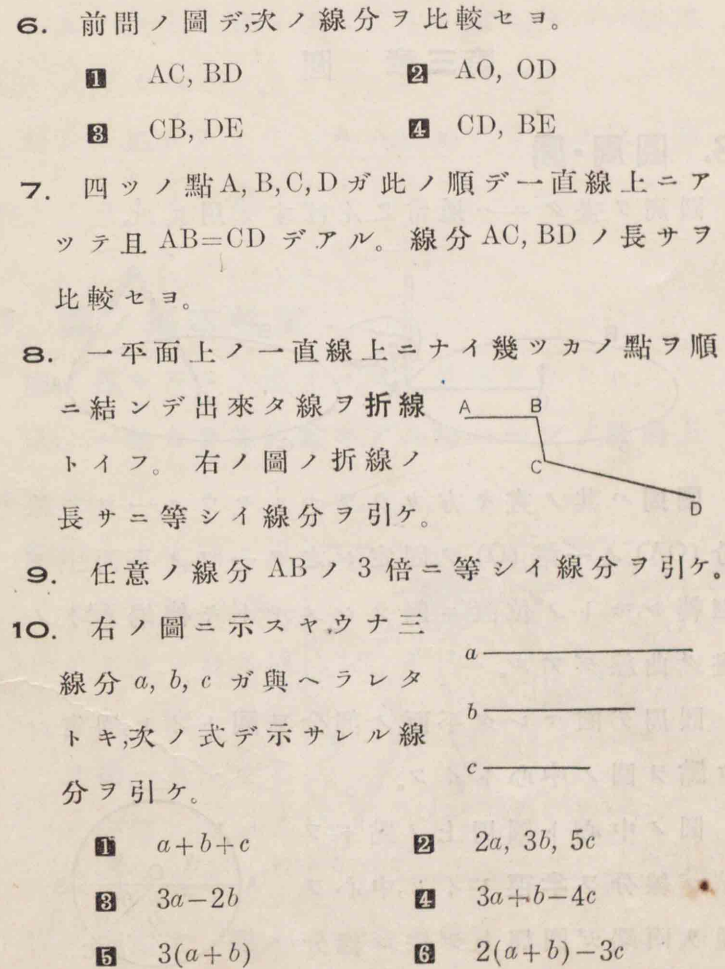 6. 前問ノ圖デ,次ノ線分ヲ比較セヨ。
1 AC, BD 2 AO, OD
3 CB, DE 4 CD, BE
7. 四ツノ點A, B, C, Dガ此ノ順デ一直線上ニア
ツテ且AB=CDデアル。線分AC, BDノ長サヲ
比較セヨ。
8. 一平面上ノ一直線上ニナイ幾ツカノ點ヲ順
ニ結ンデ出來タ線ヲ折線
トイフ。右ノ圖ノ折線ノ
長サニ等シイ線分ヲ引ケ。
A B
C
D
9. 任意ノ線分ABノ3倍ニ等シイ線分ヲ引ケ。
10. 右ノ圖ニ示スヤウナ三
線分a, b, cガ與ヘラレタ
トキ,次ノ式デ示サレル線
分ヲ引ケ。
a
b
c
1 a+b+c 2 2a, 3b, 5c
3 3a−2b 4 3a+b−4c
5 3(a+b) 6 2(a+b)−3c